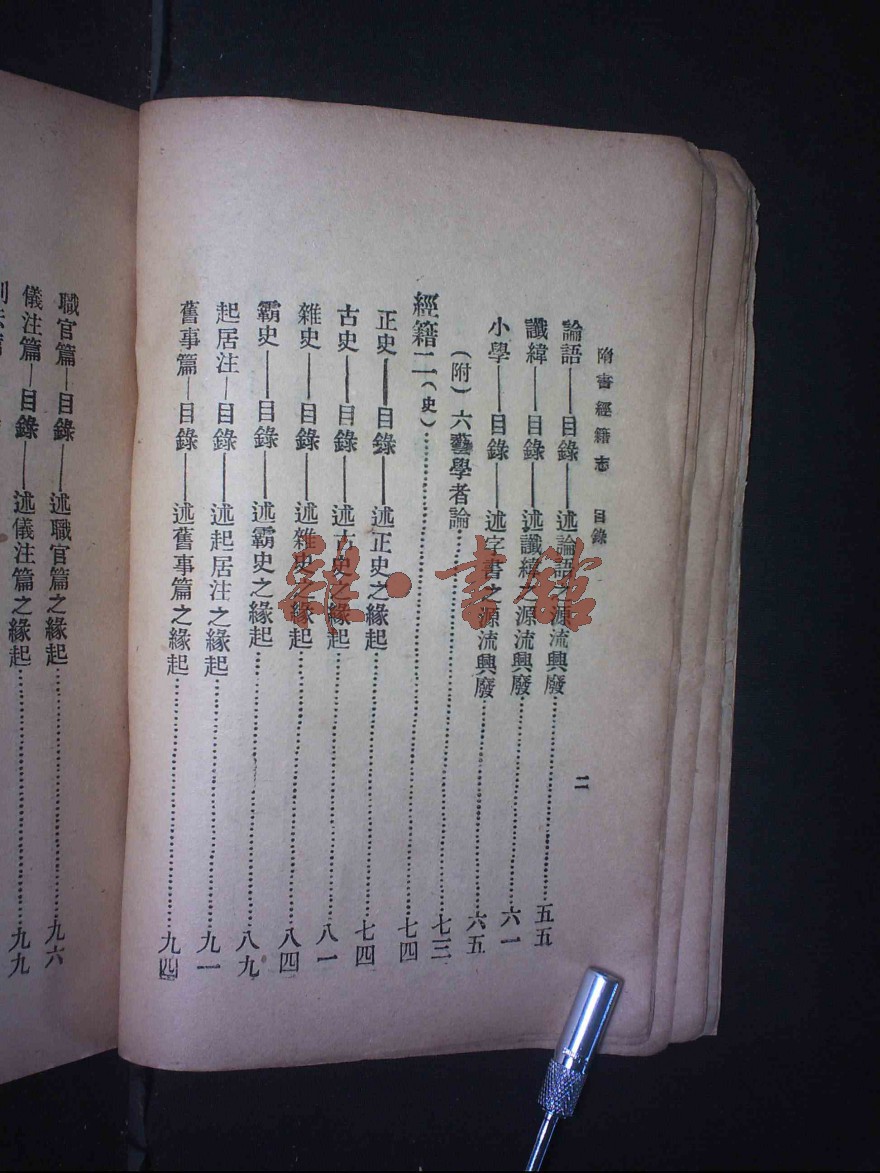 隋書經籍志　目錄
二
論語——目錄——述論語之源流興廢……五五
讖緯——目錄——述讖緯之源流興廢……六一
小學——目錄——述字書之源流興廢……六五
(附)六藝學者論……七三
經籍二(史)……七四
正史——目錄——述正史之緣起……七四
古史——目錄——述古史之緣起……八一
雜史——目錄——述雜史之緣起……八四
霸史——目錄——述霸史之緣起……八九
起居注—目錄——述起居注之緣起……九一
舊事篇—目錄——述舊事篇之緣起……九四
職官篇—目錄——述職官篇之緣起……九六
儀注篇—目錄——述儀注篇之緣起……九九